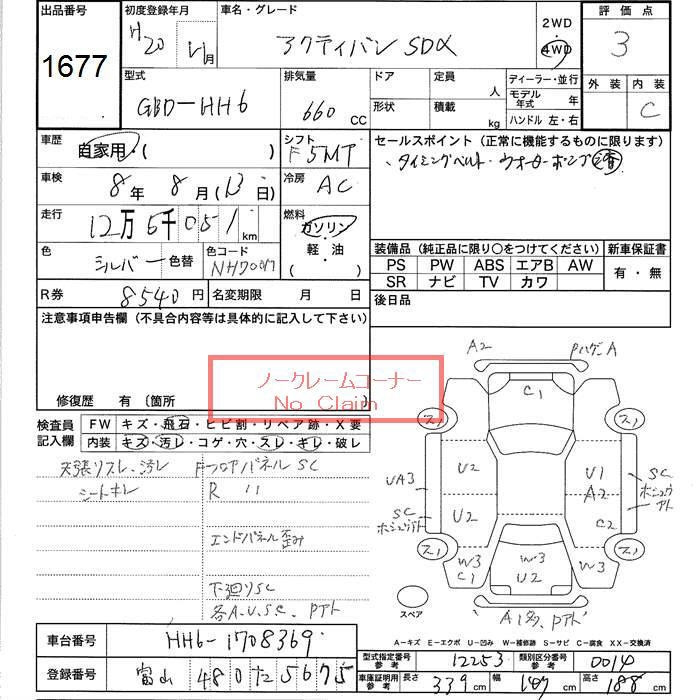 出品番号
1677
初度登録年月
H20 月
車名・グレード
アクティバン SDX
2WD
4WD
評価点
3
外装 内装
C
型式
GBD-HH6
排気量
660 CC
ドア
形状
定員 人
積載 kg
ディーラー・並行
モデル年式 年
ハンドル 左・右
車歴
自家用・( )
シフト
F5MT
セールスポイント (正常に機能するものに限ります)
・タイミングベルト・ウォーターポンプ 済
車検
8年 8月 (13日)
冷房
AC
走行
12万5千051 km
燃料
ガソリン
・軽・油
・( )
色
シルバー 色替
色コード
NH700M
装備品 (純正品に限り○をつけてください)
新車保証書
PS PW ABS エアB AW
SR ナビ TV カワ
有・無
R券 8540円
名変期限 月 日
後日品
注意事項申告欄 (不具合内容等は具体的に記入して下さい)
ノークレームコーナー
No Claim
修復歴 有 〔箇所
検査員記入欄
FW キズ・飛石・ヒビ割・リペア跡・X要
内装 キズ・汚レ・コゲ・穴・スレ・キレ・破レ
天張リスレ、汚レ
シートキレ
FフロアパネルSC
R 〃
エンドパネル歪み
下廻りSC
各A.U.S.C. Pアト
A2
PハゲA
C1
ス1
ス1
U2
U1
A2
UA3
SC
ホシュウアト
SC
ホシュウアト
U2
C2
ス1
ス1
W3
C1
W3
U2
W3
スペア
A1多、Pアト
A-キズ E-エクボ U-凹み W-補修跡 S-サビ C-腐食 XX-交換済
車台番号 HH6-1708369
登録番号 富山 480 た 5675
型式指定番号 参考 12253
類別区分番号 参考 0014
車庫証明用 参考 長さ 339 cm 幅 147 cm 高さ 188 cm